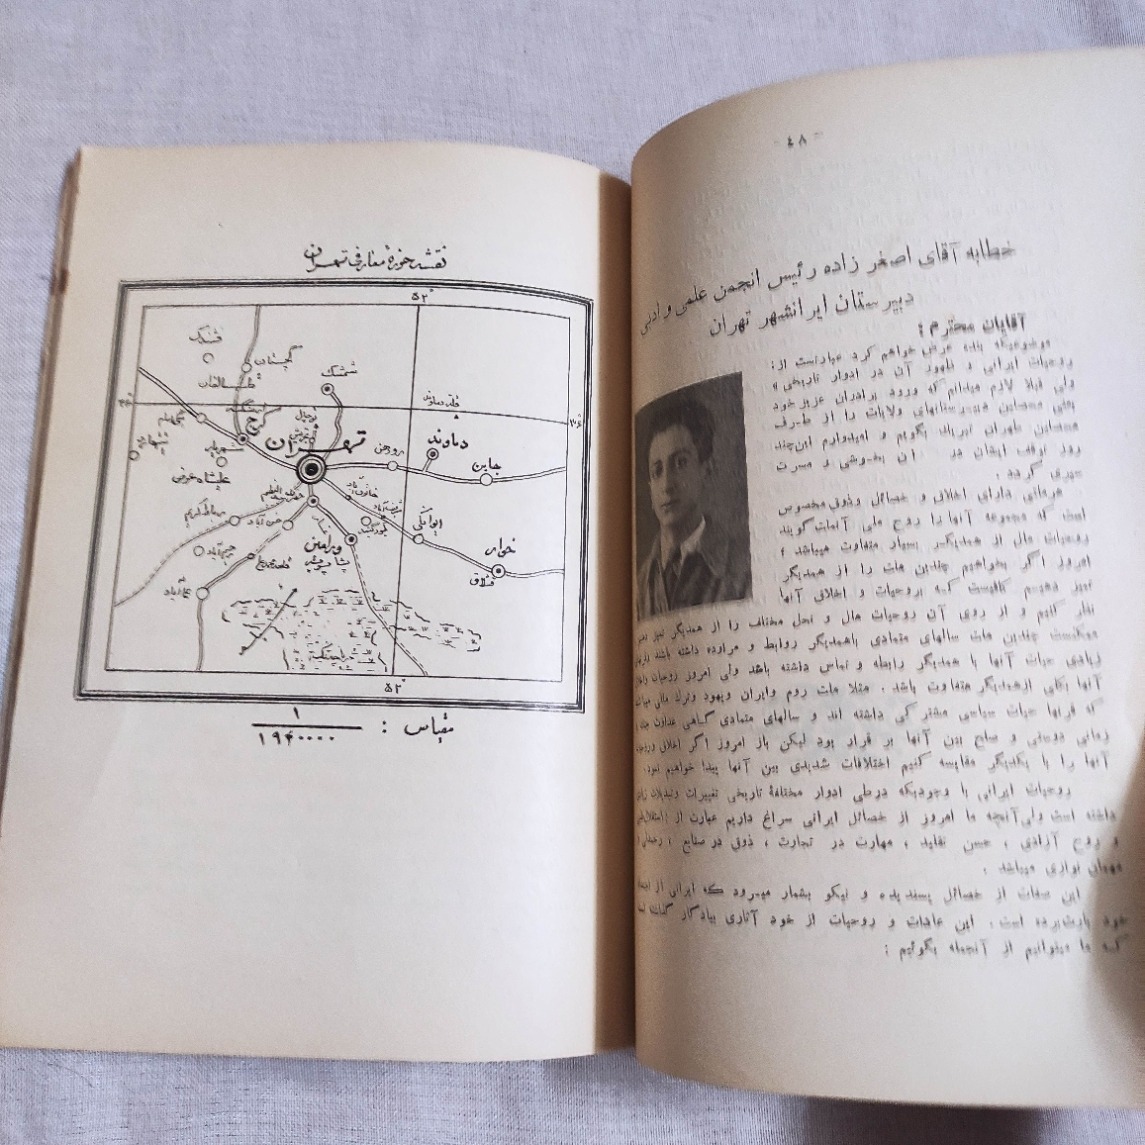 - ٤٨ -
خطابه آقای اصغر زاده رئیس انجمن علمی و ادبی
دبیرستان ایرانشهر تهران
آقایان محترم :
موضوعیکه بنده عرض خواهم کرد عبارتست از :
روحیات ایرانی و ظهور آن در ادوار تاریخی»
ولی قبلا لازم میدانم که ورود برادران عزیز خود
یعنی محصلین دبیرستانهای ولایات را از طرف
محصلین طهران تبریک بگویم و امیدوارم این چند
روز توقف ایشان در بخوشی و مسرت
سپری گردد .
هر ملتی دارای اخلاق و خصائل و ذوق مخصوص
است که مجموعه آنها را روح ملی آنملت گویند
روحیات ملل از همدیگر بسیار متفاوت میباشد ؛
امروز اگر بخواهیم چندین ملت را از همدیگر
تمیز دهیم کافیست که بروحیات و اخلاق آنها
نظر کنیم و از روی آن روحیات ملل و نحل مختلف را از همدیگر تمیز
ممکنست چندین ملت سالهای متمادی باهمدیگر روابط و مراوده داشته باشند
زیادی حیات آنها با همدیگر رابطه و تماس داشته باشد ولی امروز روحیات
آنها بکلی از همدیگر متفاوت باشد . مثلا ملت روم و ایران و یهود و ترک
که قرنها حیات سیاسی مشترکی داشته اند و سالهای متمادی گاهی عداوت
زمانی دوستی و صلح بین آنها بر قرار بود لیکن باز امروز اگر اخلاق
آنها را با یکدیگر مقایسه کنیم اختلافات شدیدی بین آنها پیدا خواهیم نمود .
روحیات ایرانی با وجودیکه درطی ادوار مختلفهٔ تاریخی تغییرات و تبدیلات
داشته است ولی آنچه ما امروز از خصائل ایرانی سراغ داریم عبارت از :
و روح آزادی ، حسن تقلید ، مهارت در تجارت ، ذوق در صنایع ،
مهمان نوازی میباشد .
این صفات از خصائل پسندیده و نیکو بشمار میرود که ایرانی از
خود بارث برده است . این عادات و روحیات از خود آثاری بیادگار گذاشته
که ما میتوانیم از آنجمله بگوئیم :
نقشه حوزهٔ معارفی تهران
٥٢°
فشک
گچسار
شمشک
طالقان
٣٦°
قله دماوند
٣٦°
کرج
تهران
دماوند
رودهن
جابن
شهریار
علیشاه عوض
رباط کریم
حسن آباد
ایوانکی
ورامین
خوار
قشلاق
٥٢°
مقیاس : ١/١٩٢٠٠٠٠